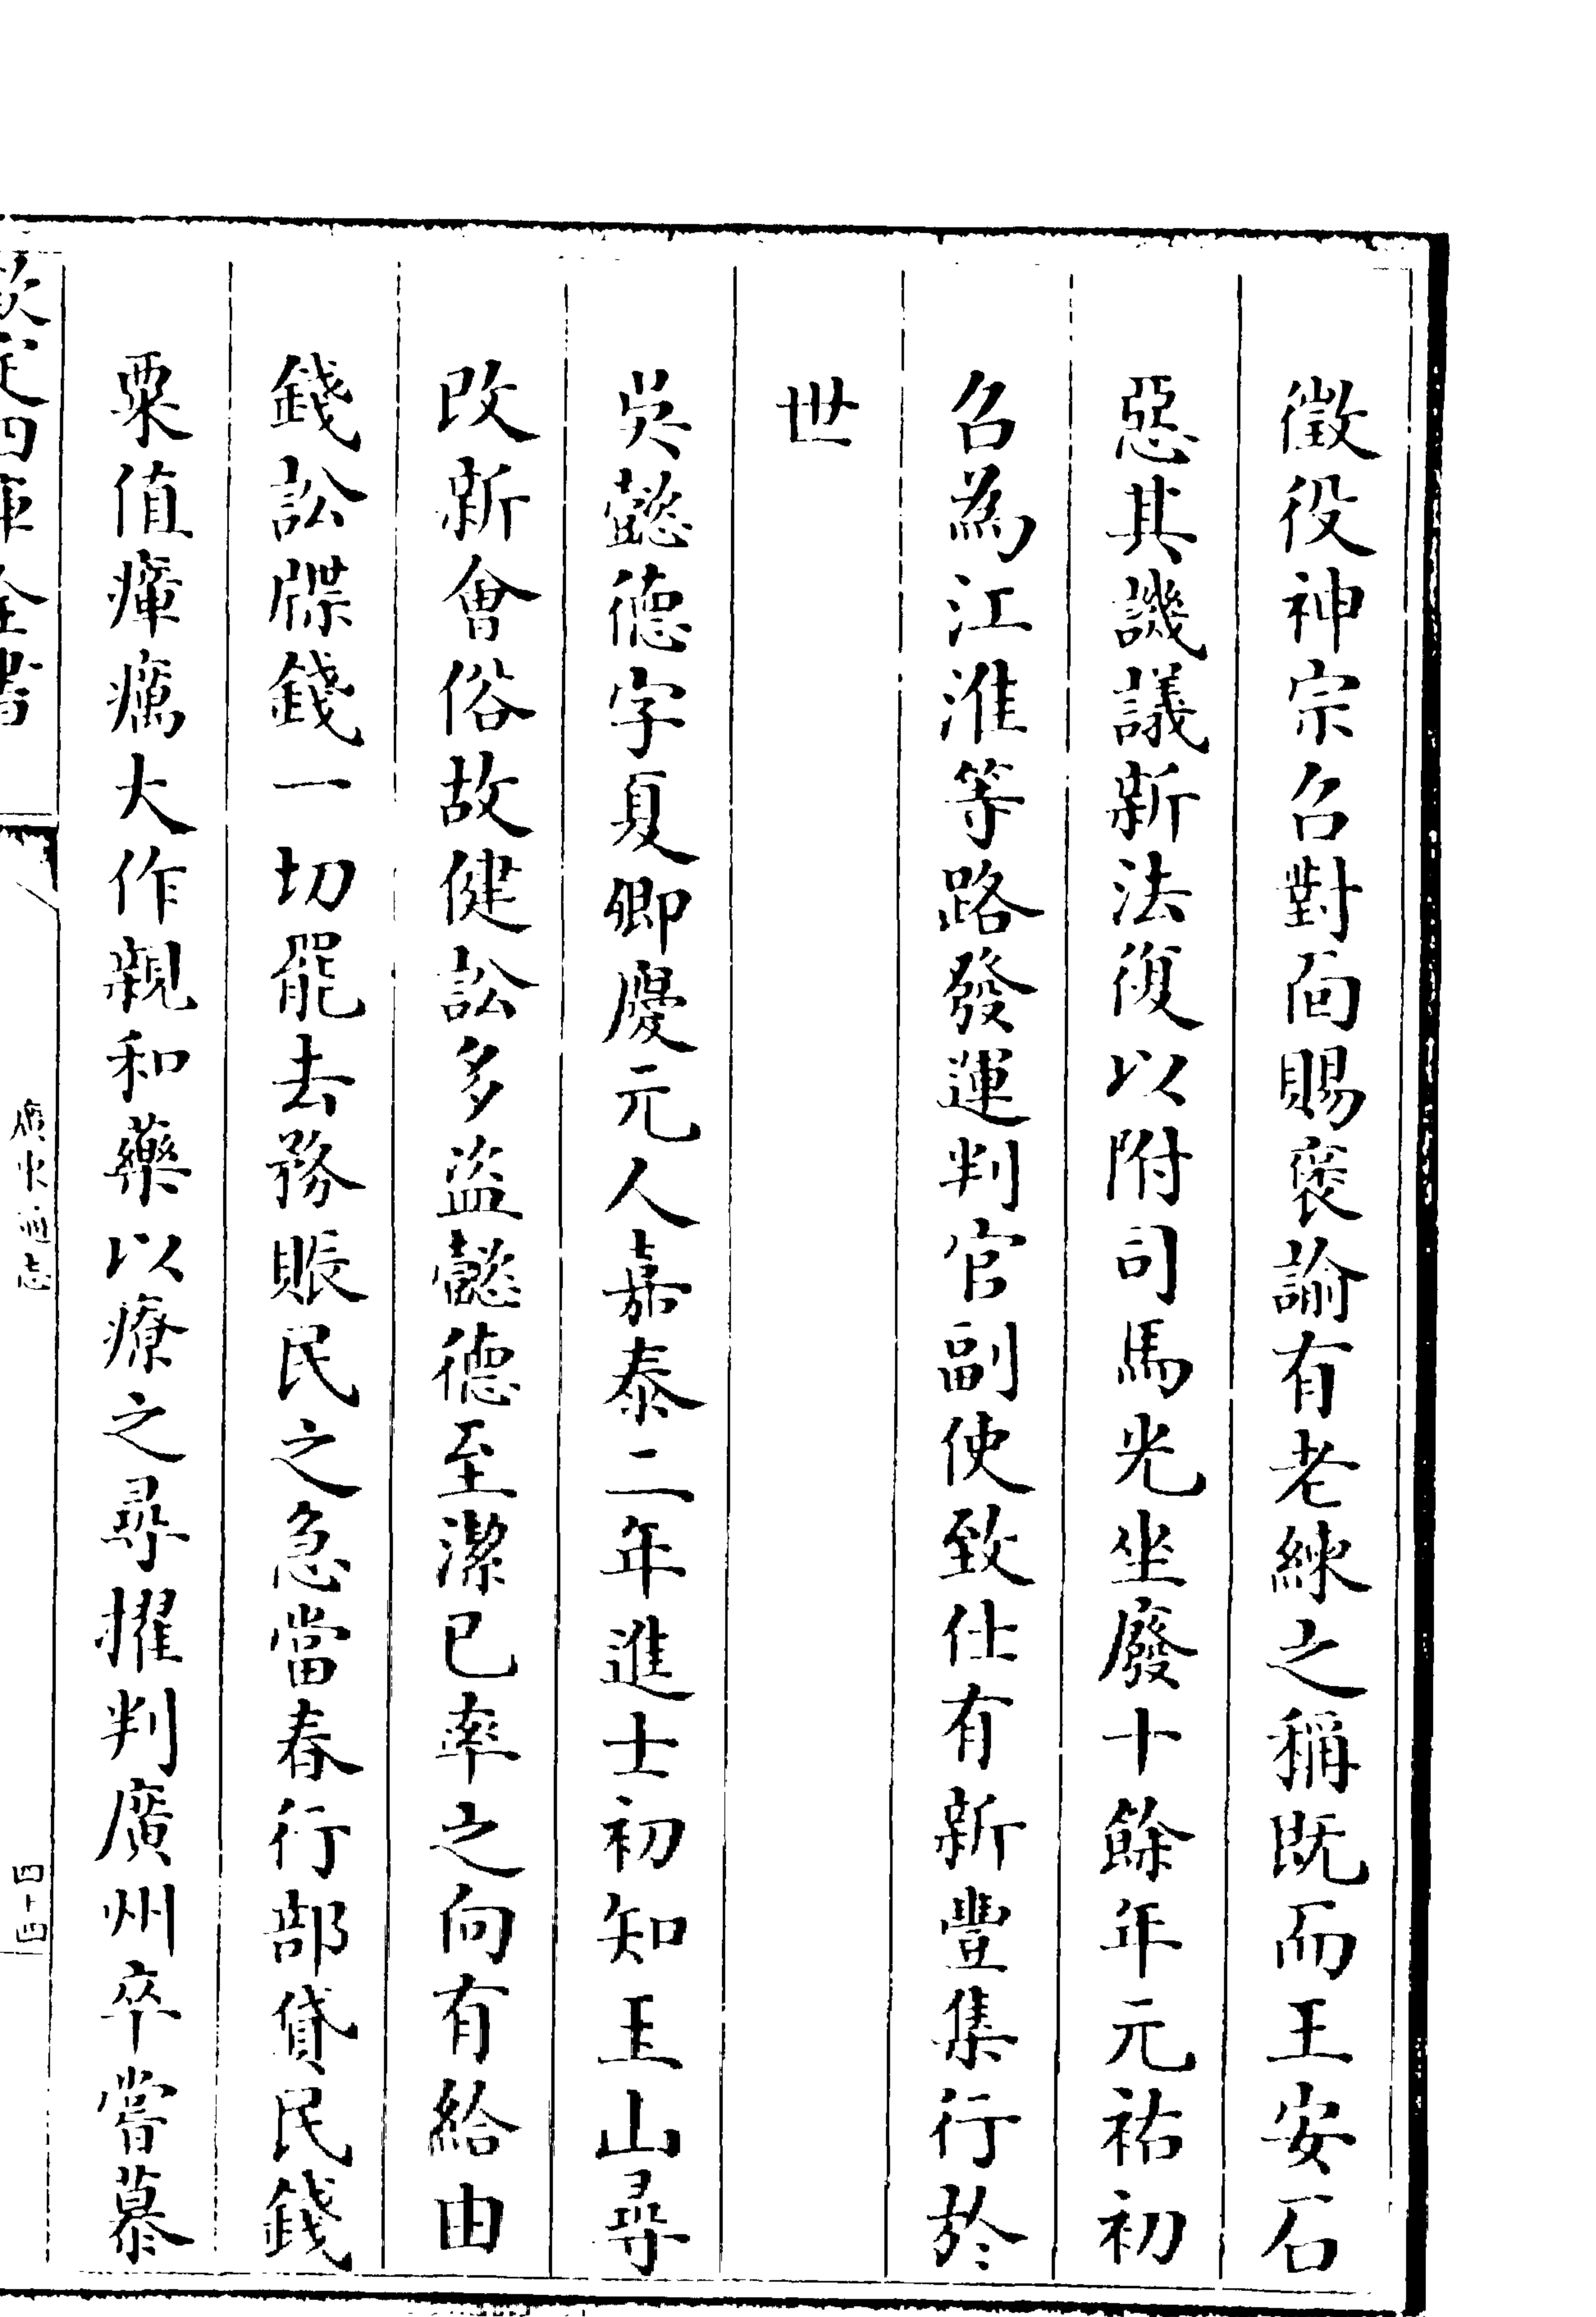 徵役神宗召對面賜褒諭有老練之稱既而王安石
惡其譏議新法復以附司馬光坐廢十餘年元祐初
召為江淮等路發運判官副使致仕有新豐集行於
世
吳懿德字夏卿慶元人嘉泰二年進士初知玉山尋
改新會俗故健訟多盜懿德至潔已率之向有給由
錢訟牒錢一切罷去務賑民之急當春行部貸民錢
粟值瘴癘大作親和藥以療之尋擢判廣州卒嘗慕
欽定四庫全書
廣東通志
四十四